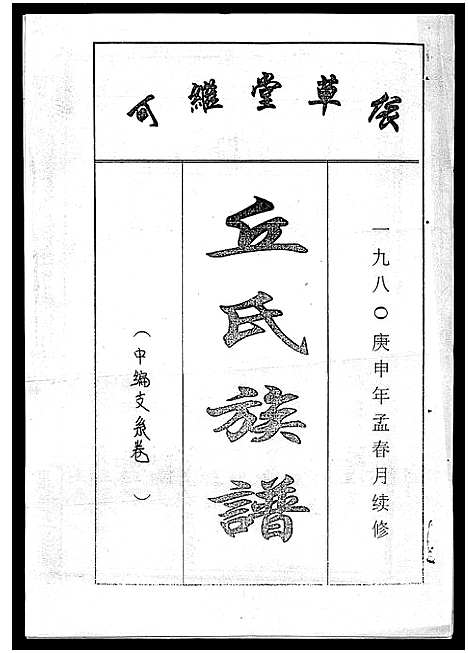 草堂繼可
一九八〇庚申年孟春月续修
丘氏族譜
（中编支系卷）